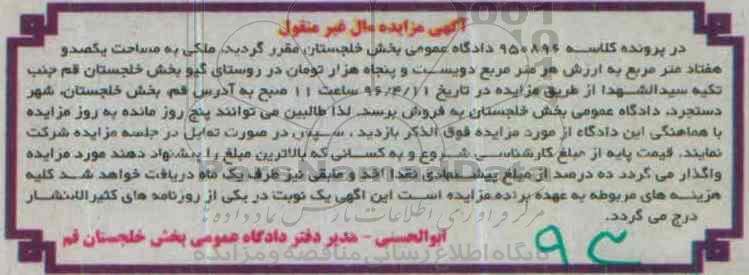 آگهی مزایده مال غیر منقول
در پرونده کلاسه ۹۵۰۸۹۶ دادگاه عمومی بخش خلجستان مقرر گردید، ملکی به مساحت یکصدو
هفتاد متر مربع به ارزش هر متر مربع دویست و پنجاه هزار تومان در روستای گیو بخش خلجستان قم جنب
تکیه سیدالشهدا از طریق مزایده در تاریخ ۹۶/۴/۱۱ ساعت ۱۱ صبح به آدرس قم، بخش خلجستان، شهر
دستجرد، دادگاه عمومی بخش خلجستان به فروش برسد. لذا طالبین می توانند پنج روز مانده به روز مزایده
با هماهنگی این دادگاه از مورد مزایده فوق الذکر بازدید، سپس، در صورت تمایل در جلسه مزایده شرکت
نمایند. قیمت پایه از مبلغ کارشناسی شروع و به کسانی که بالاترین مبلغ را پیشنهاد دهند مورد مزایده
واگذار می گردد ده درصد از مبلغ پیشنهادی نقدا اخذ و مابقی نیز ظرف یک ماه دریافت خواهد شد کلیه
هزینه های مربوطه به عهده برنده مزایده است این آگهی یک نوبت در یکی از روزنامه های کثیرالانتشار
درج می گردد.
ابوالحسنی - مدیر دفتر دادگاه عمومی بخش خلجستان قم
پایگاه اطلاع رسانی مناقصه و مزایده